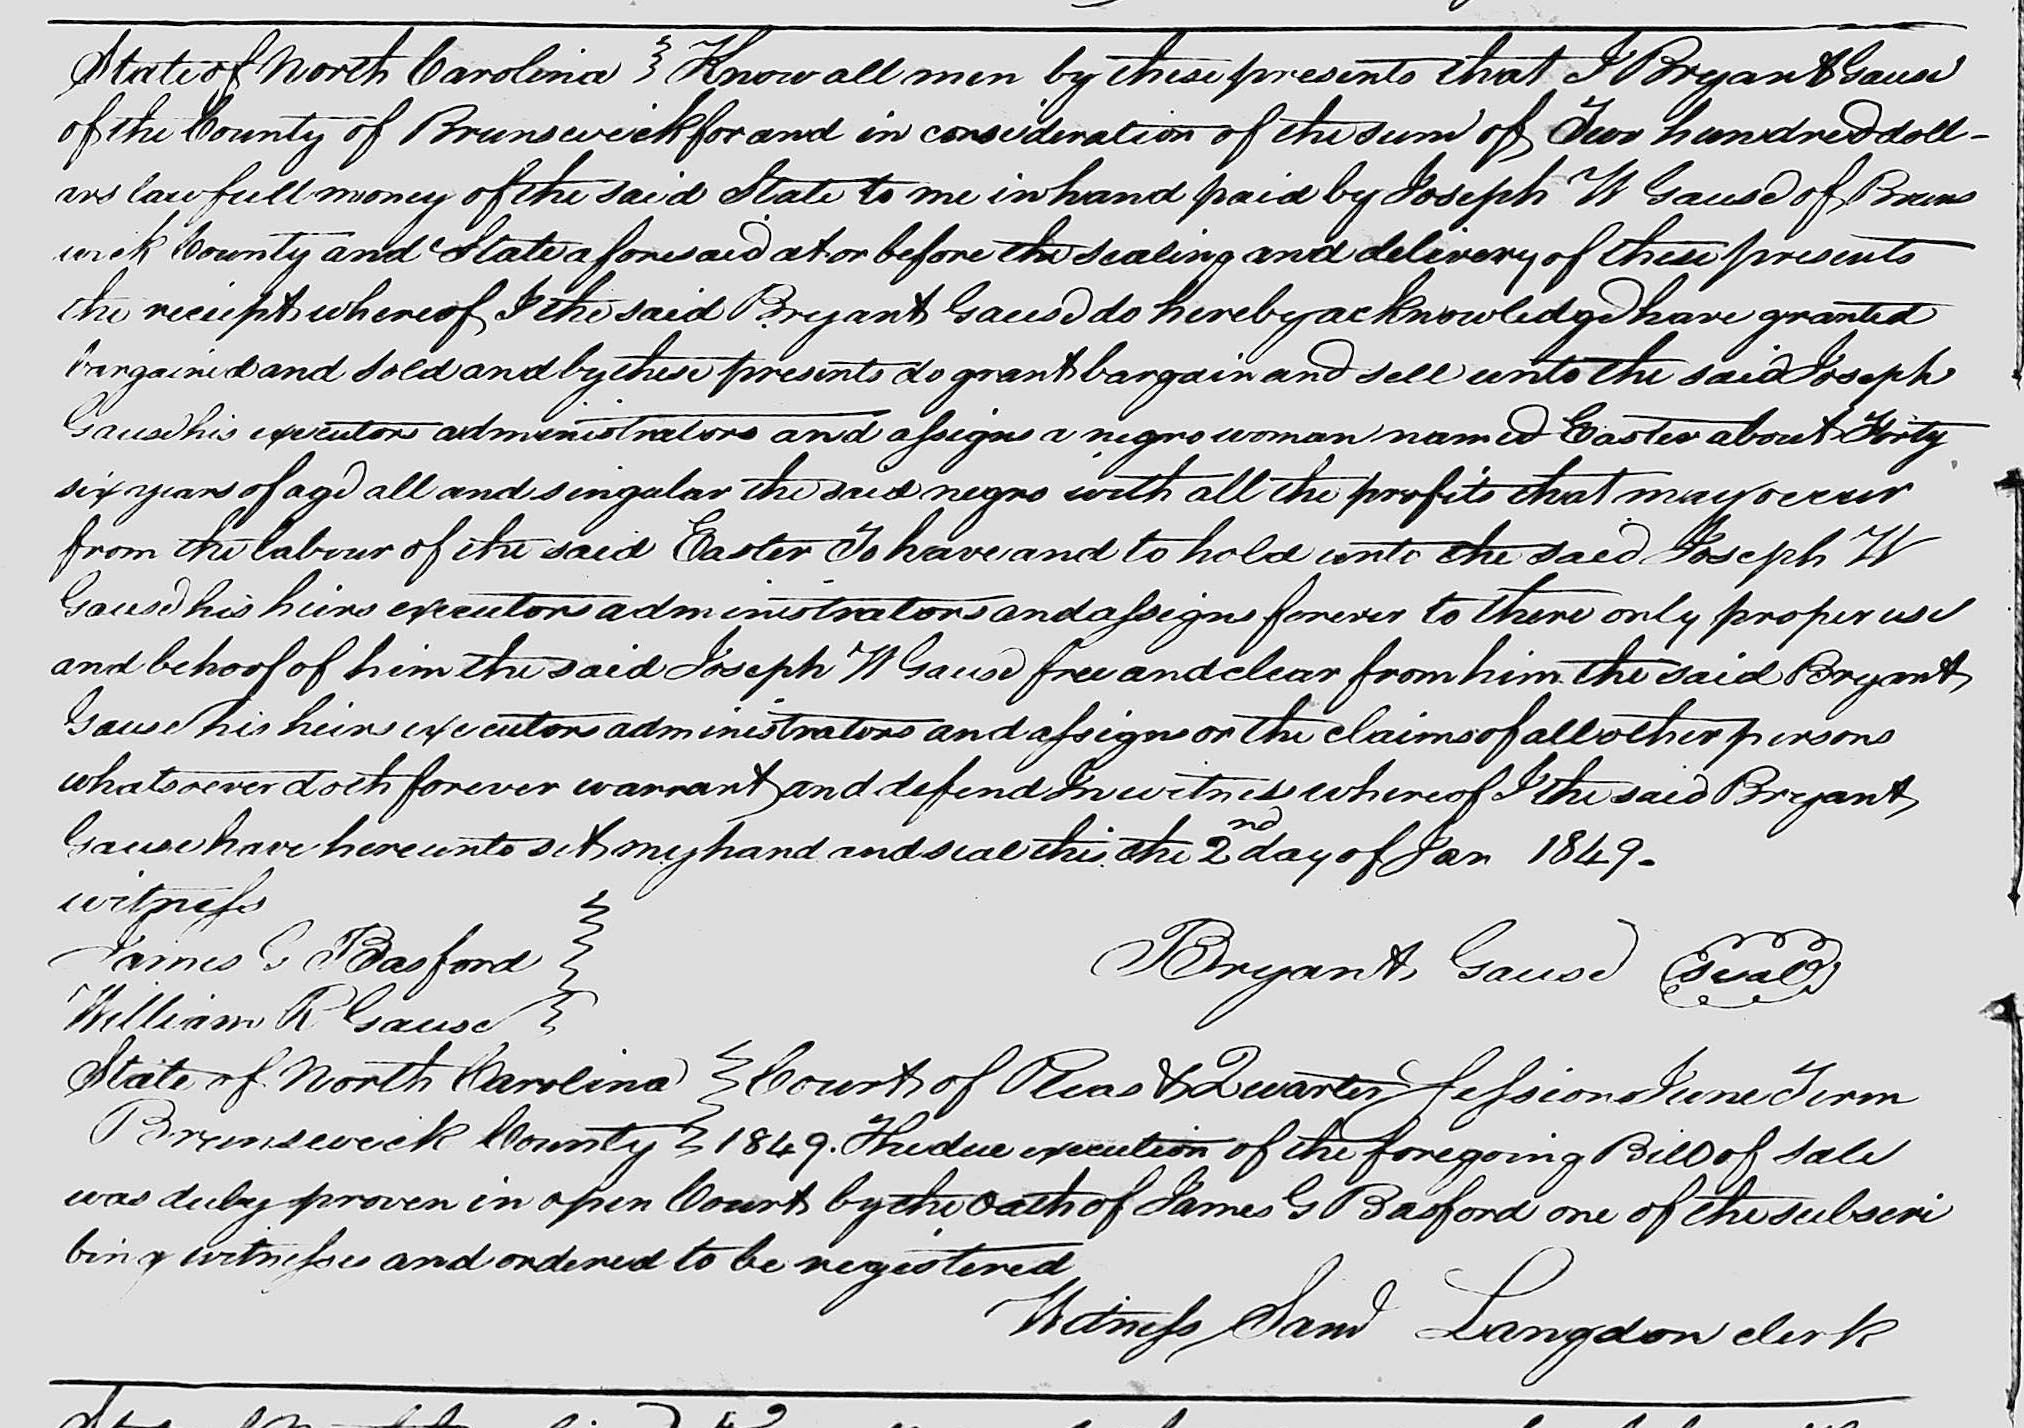 State of North Carolina } Know all men by these presents that I Bryant Gause
of the County of Brunswick for and in consideration of the sum of Two hundred doll-
ars lawfull money of the said State to me in hand paid by Joseph W Gause of Bruns
wick County and State aforesaid at or before the sealing and delivery of these presents
the reciept whereof I the said Bryant Gause do hereby acknowledge have granted
bargained and sold and by these presents do grant bargain and sell unto the said Joseph
Gause his executors administrators and assigns a negro woman named Easter about Forty
six years of age all and singular the said negro with all the profits that may occur
from the labour of the said Easter To have and to hold unto the said Joseph W
Gause his heirs executors administrators and assigns forever to there only proper use
and behoof of him the said Joseph W Gause free and clear from him the said Bryant
Gause his heirs executors administrators and assigns or the claims of all other persons
whatsoever doth forever warrant and defend In witness whereof I the said Bryant
Gause have hereunto set my hand and seal this the 2nd day of Jan 1849.
witness
James G Basford
Bryant Gause seal
William R Gause
State of North Carolina } Court of Pleas & Quarter Sessions June Term
Brunswick County } 1849. The due execution of the foregoing Bill of Sale
was duly proven in open Court by the oath of James G Basford one of the subscri
bing witnesses and ordered to be registered
Witness Saml Langdon clerk